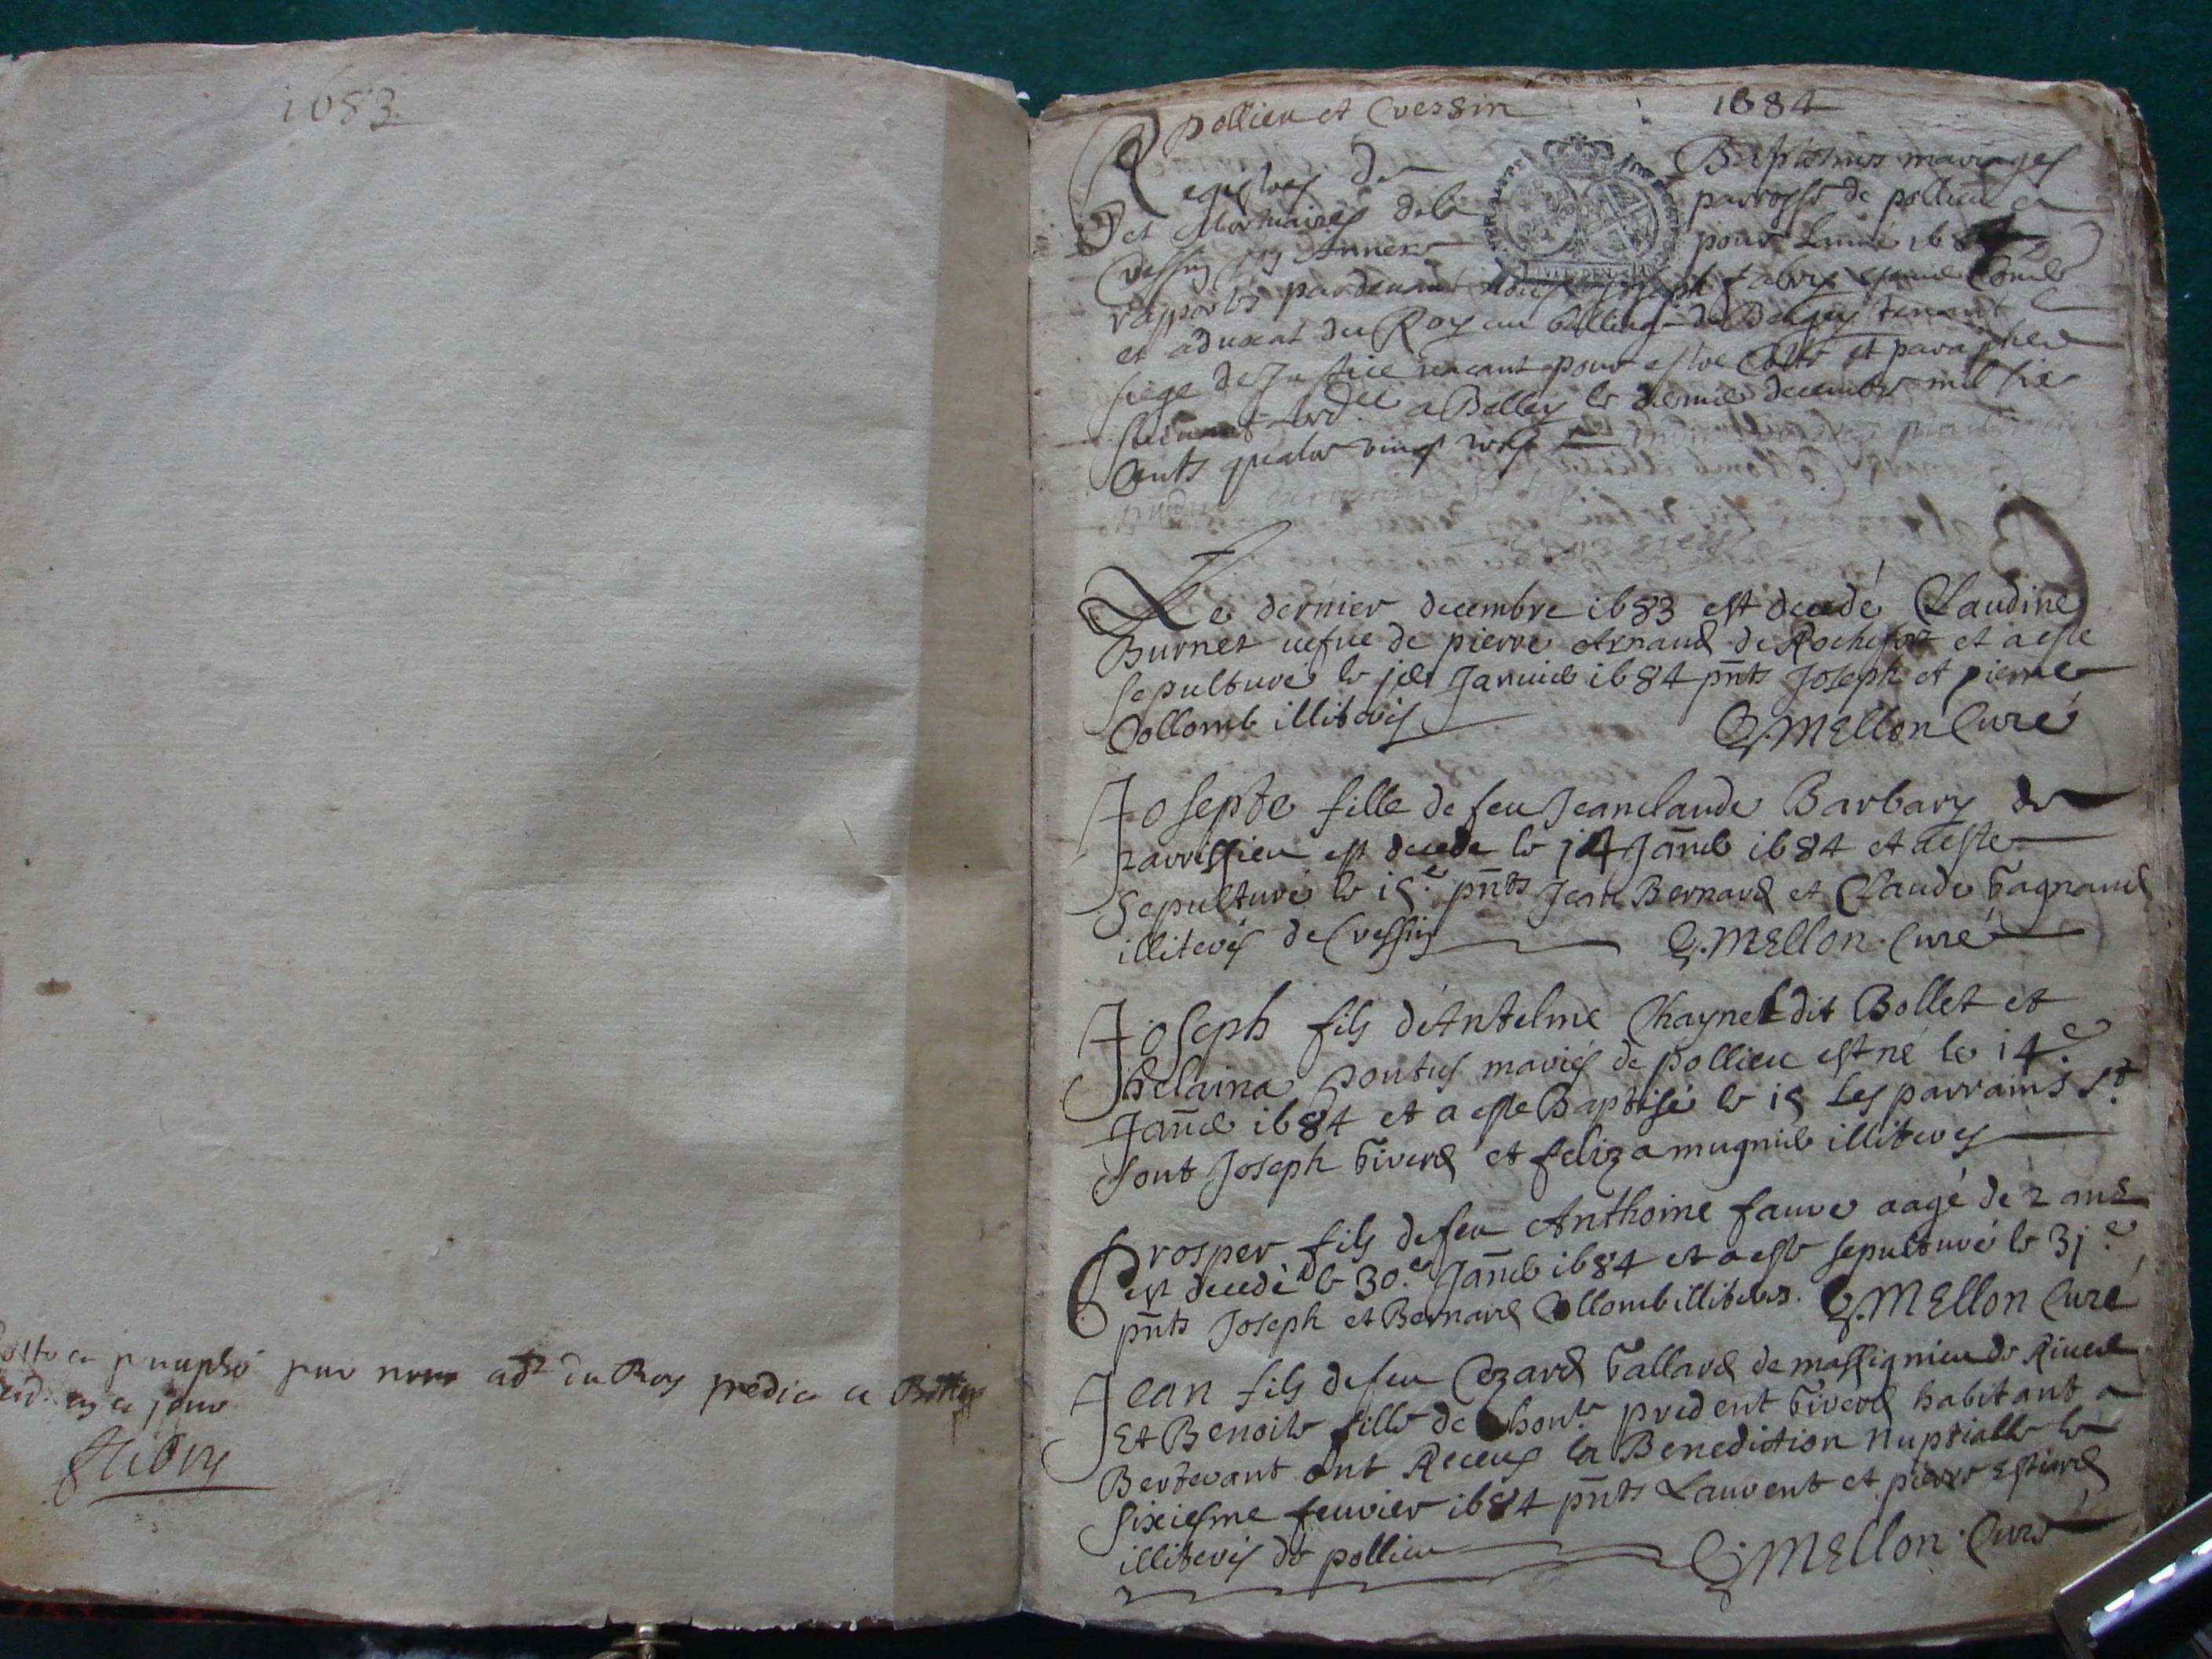 1683
par nous adt du Roy
en ce jour
pollieu et Cressin 1684
Registres de Baptesmes mariages
et Mortuaires de la parrosse de pollieu et
Cressin son Annexe pour l'année 1684
rapportés pardevant nous Joseph
et aduocat du Roy au Balliage de Beugey tenant
siege de Justice vacant pour estre Cottés et paraphez
a Belley le dernier decembre mil six
cents quatre vingt trois
Le dernier decembre 1683 est decedé Claudine
Burnet uefue de pierre Arnaud de Rochefort et a este
sepulturé le jer Januier 1684 pnts Joseph et pierre
Collomb illiterés
C. Mellon Curé
Josepte fille de feu Jeanclaude Barbary de
parrissieu est decede le 14 Janvie 1684 et a este
Sepulturé le 15.e pnts Jean Bernard et Claude
illiterés de Cressin C. Mellon Curé
Joseph fils d'Antelme Chaynel dit Bollet et
helaina pontus mariés de pollieu est né le 14.e
Janvie 1684 et a este Baptisé le 15 Les parrains
sont Joseph Tiverd et feliza mugnie illiteres
Prosper fils de feu Anthoine favre aagé de 2 ans
est decedé le 30.e Janvie 1684 et a este sepulturé le 31.e
pnts Joseph et Bernard Collomb illiteres. C. Mellon Curé
Jean fils de feu Cezard Tallard de massignieu de Riue
Et Benoite fille de hont. prudent Tiverd habitant a
Berterant ont Receus la Benediction nuptialle le
sixiesme feuvier 1684 pnts Laurent et pierre
illiterés de pollieu C. Mellon Curé